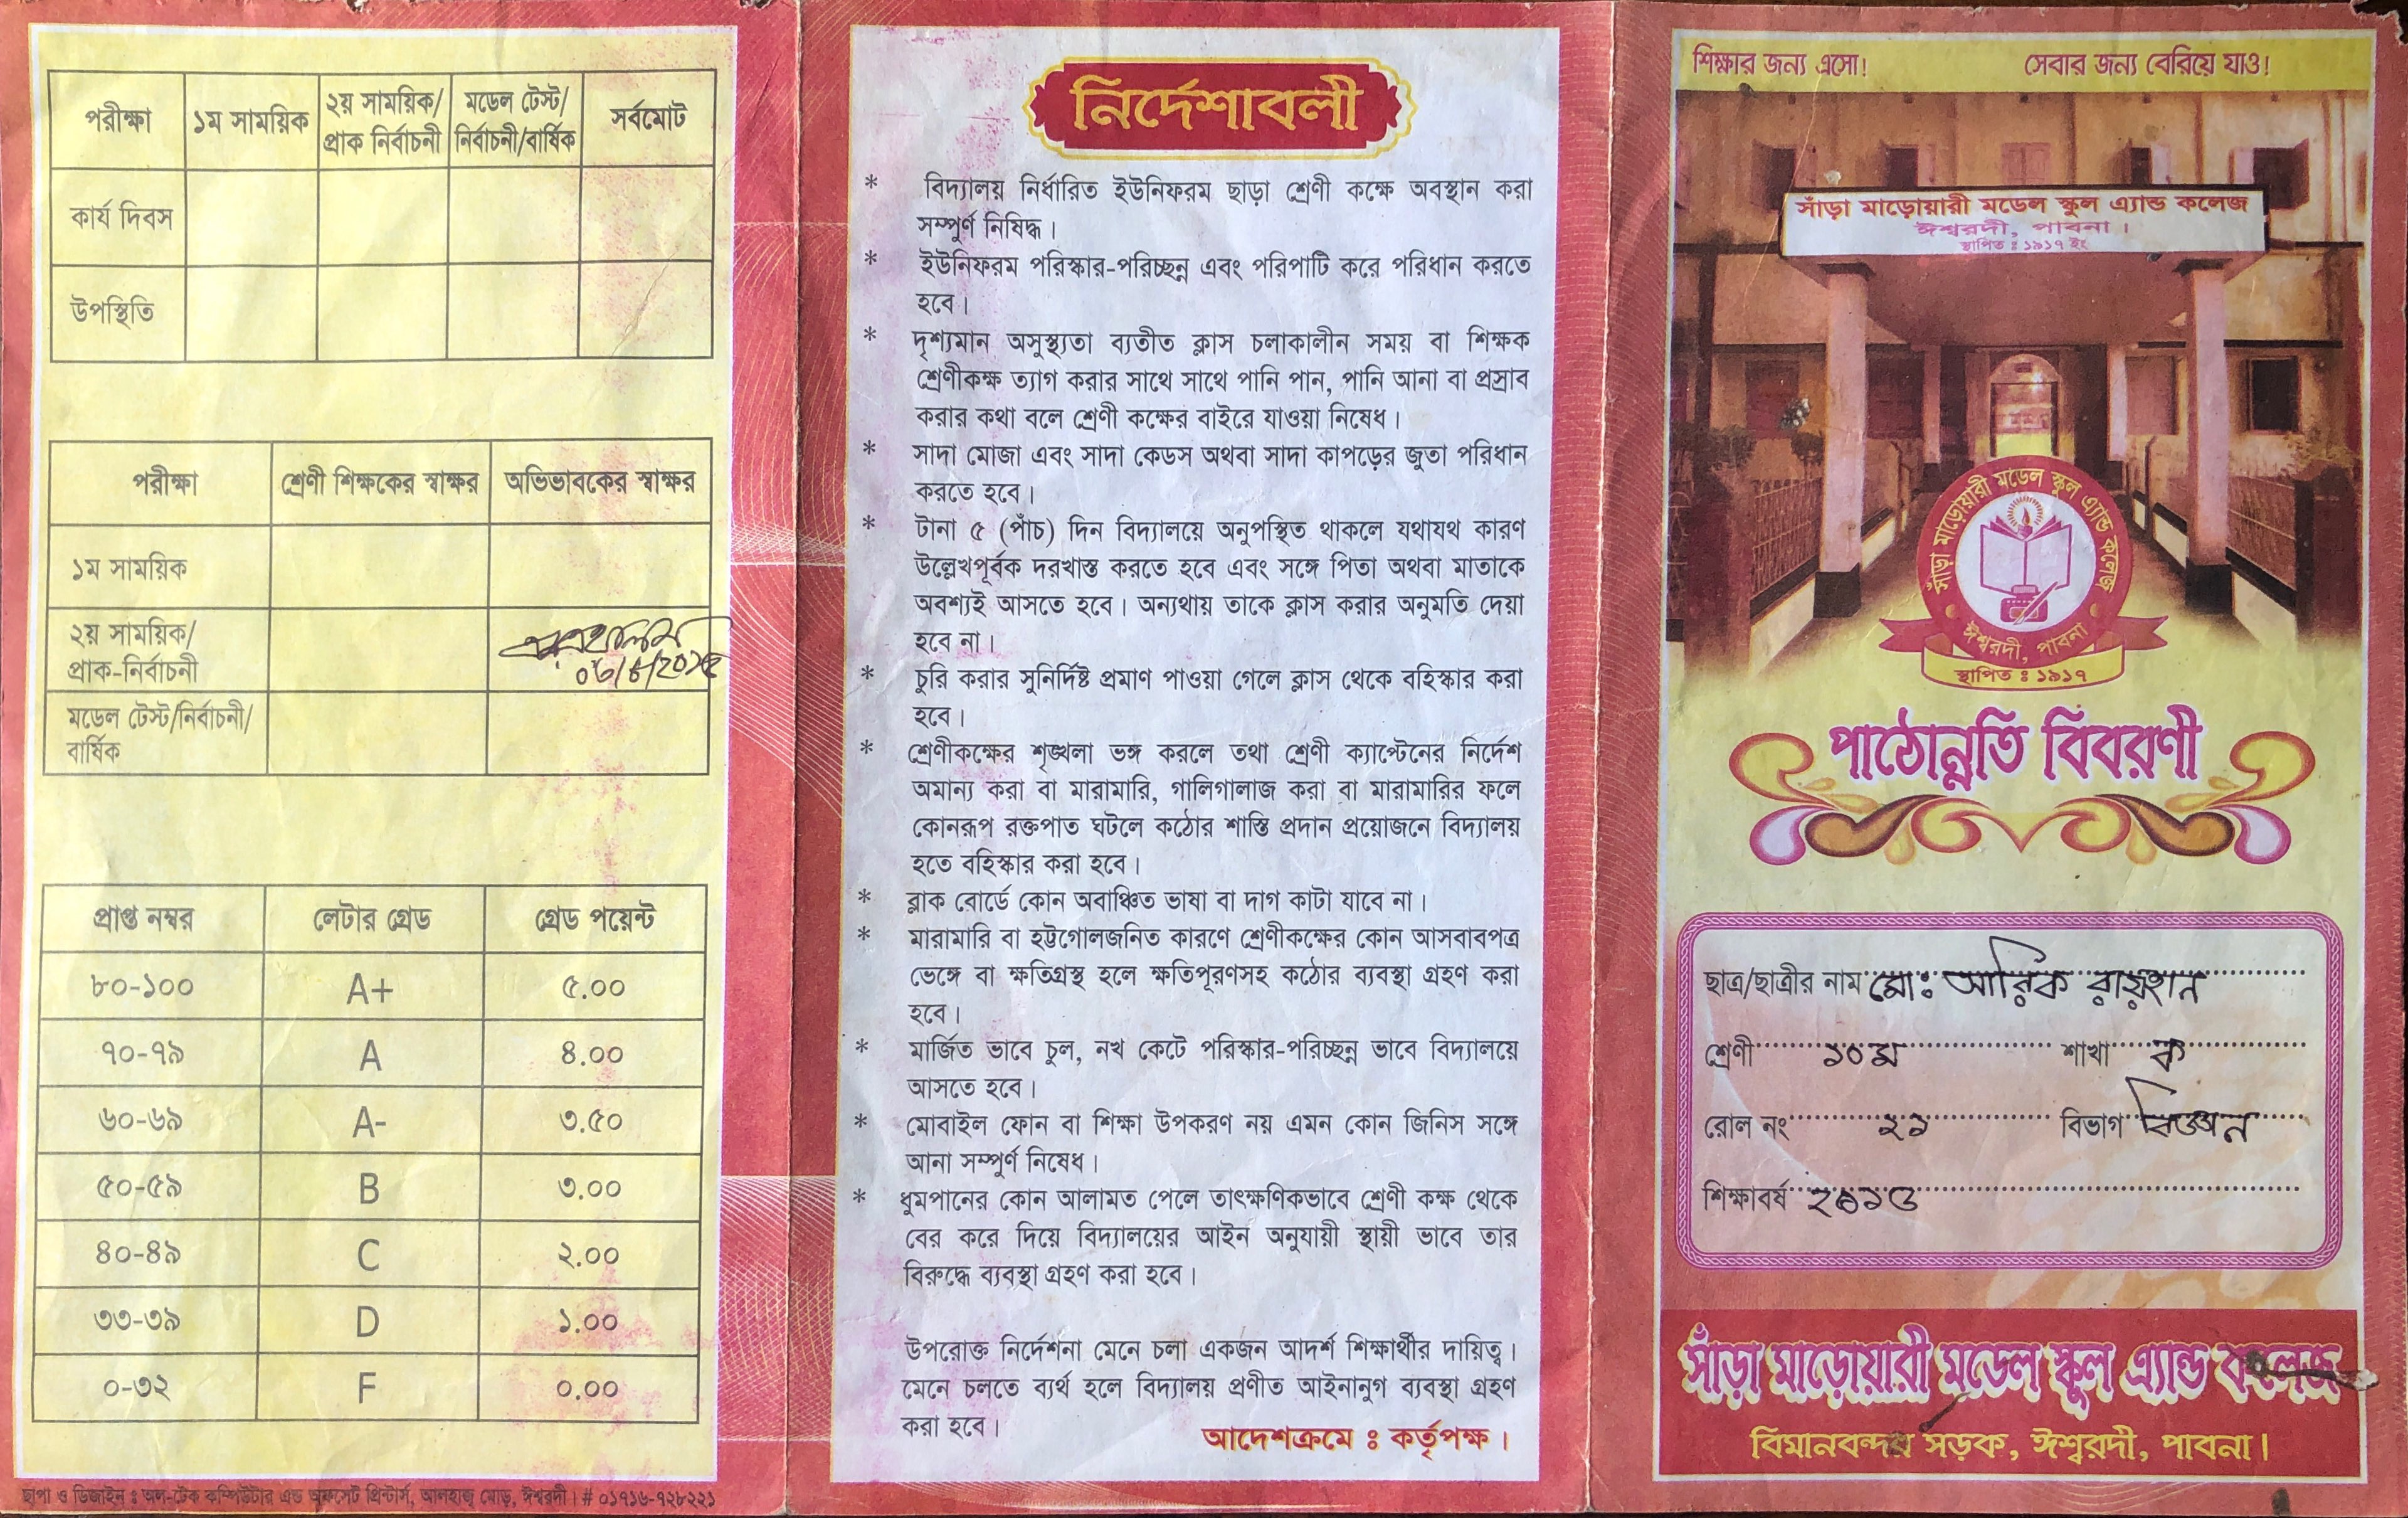 পরীক্ষা ১ম সাময়িক ২য় সাময়িক/ প্রাক নির্বাচনী মডেল টেস্ট/ নির্বাচনী/বার্ষিক সর্বমোট
কার্য দিবস
উপস্থিতি
পরীক্ষা শ্রেণী শিক্ষকের স্বাক্ষর অভিভাবকের স্বাক্ষর
১ম সাময়িক
২য় সাময়িক/
প্রাক-নির্বাচনী
মডেল টেস্ট/নির্বাচনী/
বার্ষিক
প্রাপ্ত নম্বর লেটার গ্রেড গ্রেড পয়েন্ট
৮০-১০০ A+ ৫.০০
৭০-৭৯ A ৪.০০
৬০-৬৯ A- ৩.৫০
৫০-৫৯ B ৩.০০
৪০-৪৯ C ২.০০
৩৩-৩৯ D ১.০০
০-৩২ F ০.০০
ছাপা ও ডিজাইন ঃ অল-টেক কম্পিউটার এন্ড অফসেট প্রিন্টার্স, আলহাজ্ব মোড়, ঈশ্বরদী। # ০১৭১৬-৭২৮২২১
নির্দেশাবলী
* বিদ্যালয় নির্ধারিত ইউনিফরম ছাড়া শ্রেণী কক্ষে অবস্থান করা
সম্পুর্ণ নিষিদ্ধ।
* ইউনিফরম পরিস্কার-পরিচ্ছন্ন এবং পরিপাটি করে পরিধান করতে
হবে।
* দৃশ্যমান অসুস্থ্যতা ব্যতীত ক্লাস চলাকালীন সময় বা শিক্ষক
শ্রেণীকক্ষ ত্যাগ করার সাথে সাথে পানি পান, পানি আনা বা প্রস্রাব
করার কথা বলে শ্রেণী কক্ষের বাইরে যাওয়া নিষেধ।
* সাদা মোজা এবং সাদা কেডস অথবা সাদা কাপড়ের জুতা পরিধান
করতে হবে।
* টানা ৫ (পাঁচ) দিন বিদ্যালয়ে অনুপস্থিত থাকলে যথাযথ কারণ
উল্লেখপূর্বক দরখাস্ত করতে হবে এবং সঙ্গে পিতা অথবা মাতাকে
অবশ্যই আসতে হবে। অন্যথায় তাকে ক্লাস করার অনুমতি দেয়া
হবে না।
* চুরি করার সুনির্দিষ্ট প্রমাণ পাওয়া গেলে ক্লাস থেকে বহিস্কার করা
হবে।
* শ্রেণীকক্ষের শৃঙ্খলা ভঙ্গ করলে তথা শ্রেণী ক্যাপ্টেনের নির্দেশ
অমান্য করা বা মারামারি, গালিগালাজ করা বা মারামারির ফলে
কোনরূপ রক্তপাত ঘটলে কঠোর শাস্তি প্রদান প্রয়োজনে বিদ্যালয়
হতে বহিস্কার করা হবে।
* ব্লাক বোর্ডে কোন অবাঞ্চিত ভাষা বা দাগ কাটা যাবে না।
* মারামারি বা হট্টগোলজনিত কারণে শ্রেণীকক্ষের কোন আসবাবপত্র
ভেঙ্গে বা ক্ষতিগ্রস্থ হলে ক্ষতিপূরণসহ কঠোর ব্যবস্থা গ্রহণ করা
হবে।
* মার্জিত ভাবে চুল, নখ কেটে পরিস্কার-পরিচ্ছন্ন ভাবে বিদ্যালয়ে
আসতে হবে।
* মোবাইল ফোন বা শিক্ষা উপকরণ নয় এমন কোন জিনিস সঙ্গে
আনা সম্পুর্ণ নিষেধ।
* ধুমপানের কোন আলামত পেলে তাৎক্ষণিকভাবে শ্রেণী কক্ষ থেকে
বের করে দিয়ে বিদ্যালয়ের আইন অনুযায়ী স্থায়ী ভাবে তার
বিরুদ্ধে ব্যবস্থা গ্রহণ করা হবে।
উপরোক্ত নির্দেশনা মেনে চলা একজন আদর্শ শিক্ষার্থীর দায়িত্ব।
মেনে চলতে ব্যর্থ হলে বিদ্যালয় প্রণীত আইনানুগ ব্যবস্থা গ্রহণ
করা হবে।
আদেশক্রমে ঃ কর্তৃপক্ষ।
শিক্ষার জন্য এসো! সেবার জন্য বেরিয়ে যাও!
সাঁড়া মাড়োয়ারী মডেল স্কুল এ্যান্ড কলেজ
ঈশ্বরদী, পাবনা।
স্থাপিত ঃ ১৯১৭ ইং
সাঁড়া মাড়োয়ারী মডেল স্কুল এ্যান্ড কলেজ
ঈশ্বরদী, পাবনা
স্থাপিত ঃ ১৯১৭
পাঠোন্নতি বিবরণী
ছাত্র/ছাত্রীর নাম মোঃ আরিক রায়হান
শ্রেণী ১০ম শাখা ক
রোল নং ২১ বিভাগ বিজ্ঞান
শিক্ষাবর্ষ
সাঁড়া মাড়োয়ারী মডেল স্কুল এ্যান্ড কলেজ
বিমানবন্দর সড়ক, ঈশ্বরদী, পাবনা।